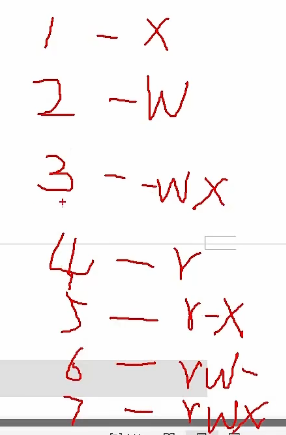 1 - x
2 - w
3 - -wx
4 - r
5 - r-x
6 - rw-
7 - rwx